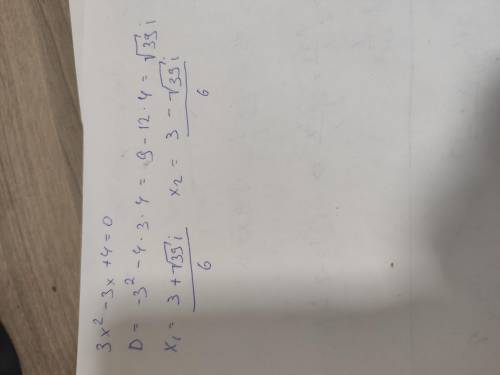 3x² - 3x + 4 = 0
D = -3² - 4 · 3 · 4 = 9 - 12 · 4 = √39 i
x₁ = (3 + √39 i) / 6    x₂ = (3 - √39 i) / 6